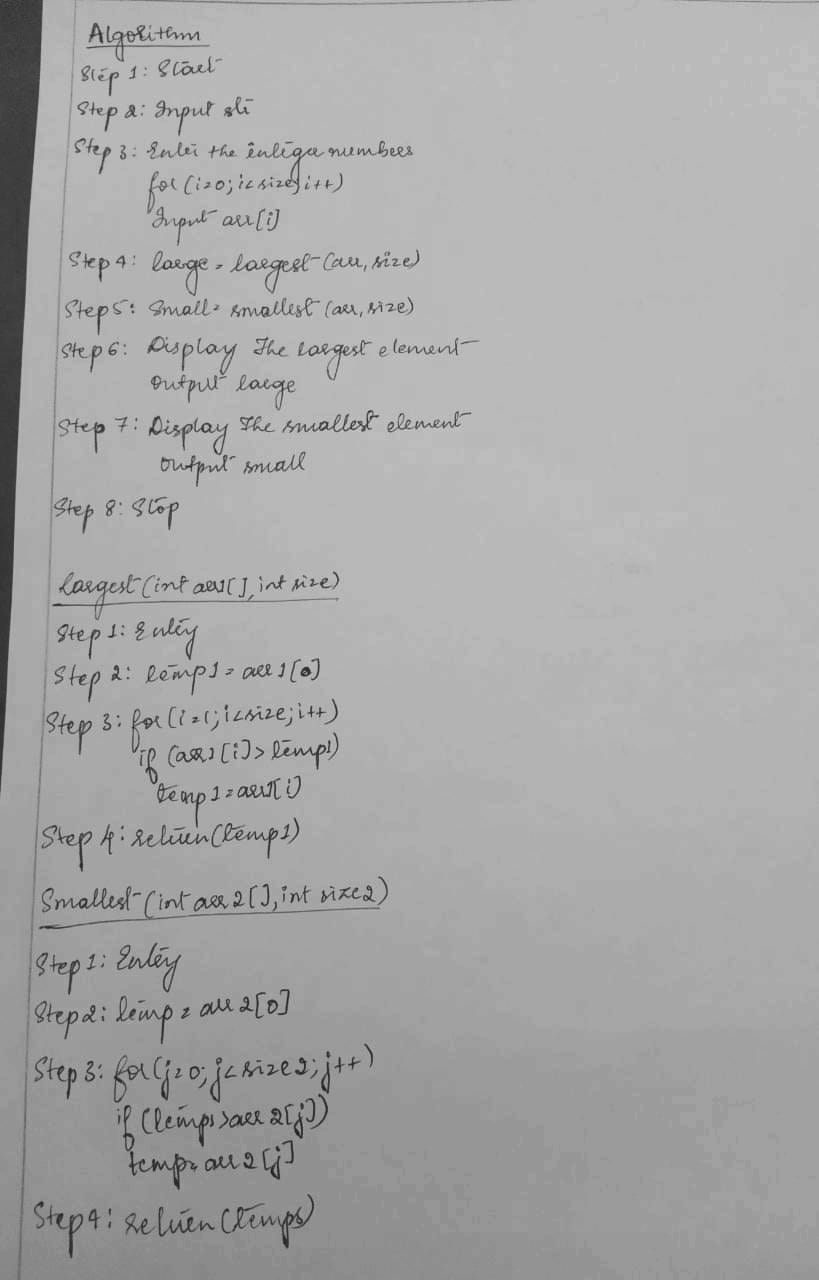 Algorithm
Step 1: Start
Step 2: Input
Step 3: Enter the integer numbers
for (i=0; i<size; i++)
Input arr[i]
Step 4: large = largest (arr, size)
Step 5: Small = smallest (arr, size)
Step 6: Display The largest element
Output large
Step 7: Display The smallest element
Output small
Step 8: Stop
largest (int arr1[], int size)
Step 1: Entry
Step 2: temp1 = arr1[0]
Step 3: for (i=1; i<size; i++)
if (arr1[i]>temp1)
temp1=arr1[i]
Step 4: return (temp1)
Smallest (int arr2[], int size2)
Step 1: Entry
Step 2: temp = arr2[0]
Step 3: for (j=0; j<size2; j++)
if (temp>arr2[j])
temp=arr2[j]
Step 4: return (temp)